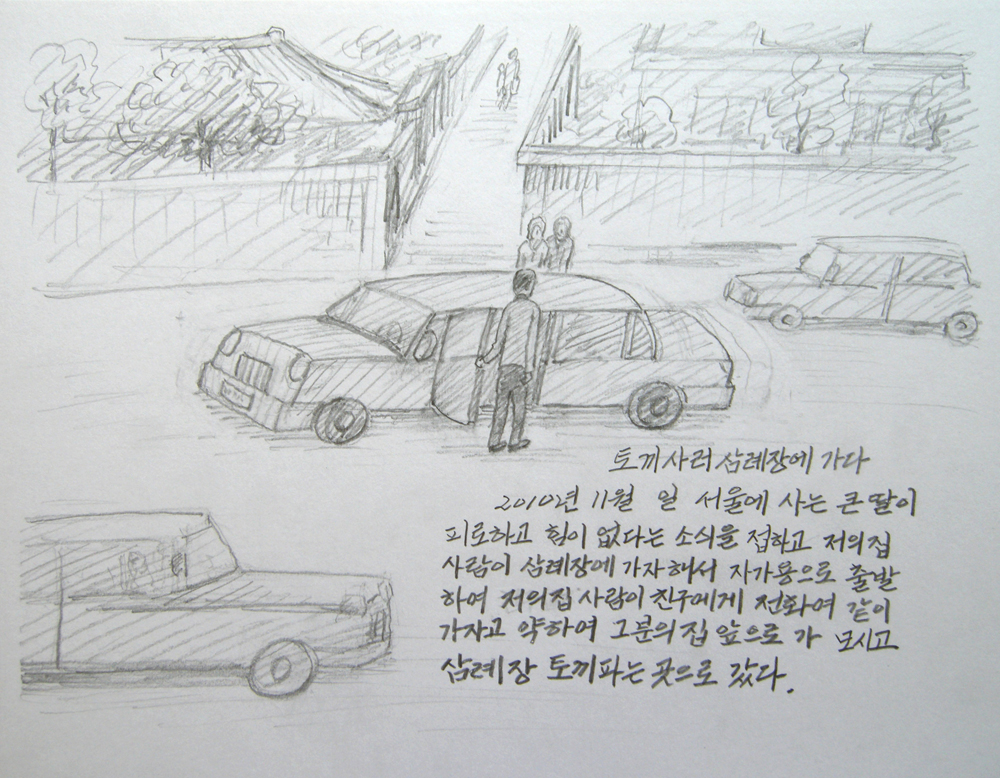 토끼사러 삼례장에 가다
2010년 11월 일 서울에 사는 큰 딸이
피로하고 힘이 없다는 소식을 접하고 저의집
사람이 삼례장에 가자해서 자가용으로 출발
하여 저의집 사람이 친구에게 전화여 같이
가자고 약하여 그분의 집 앞으로 가 모시고
삼례장 토끼파는 곳으로 갔다.